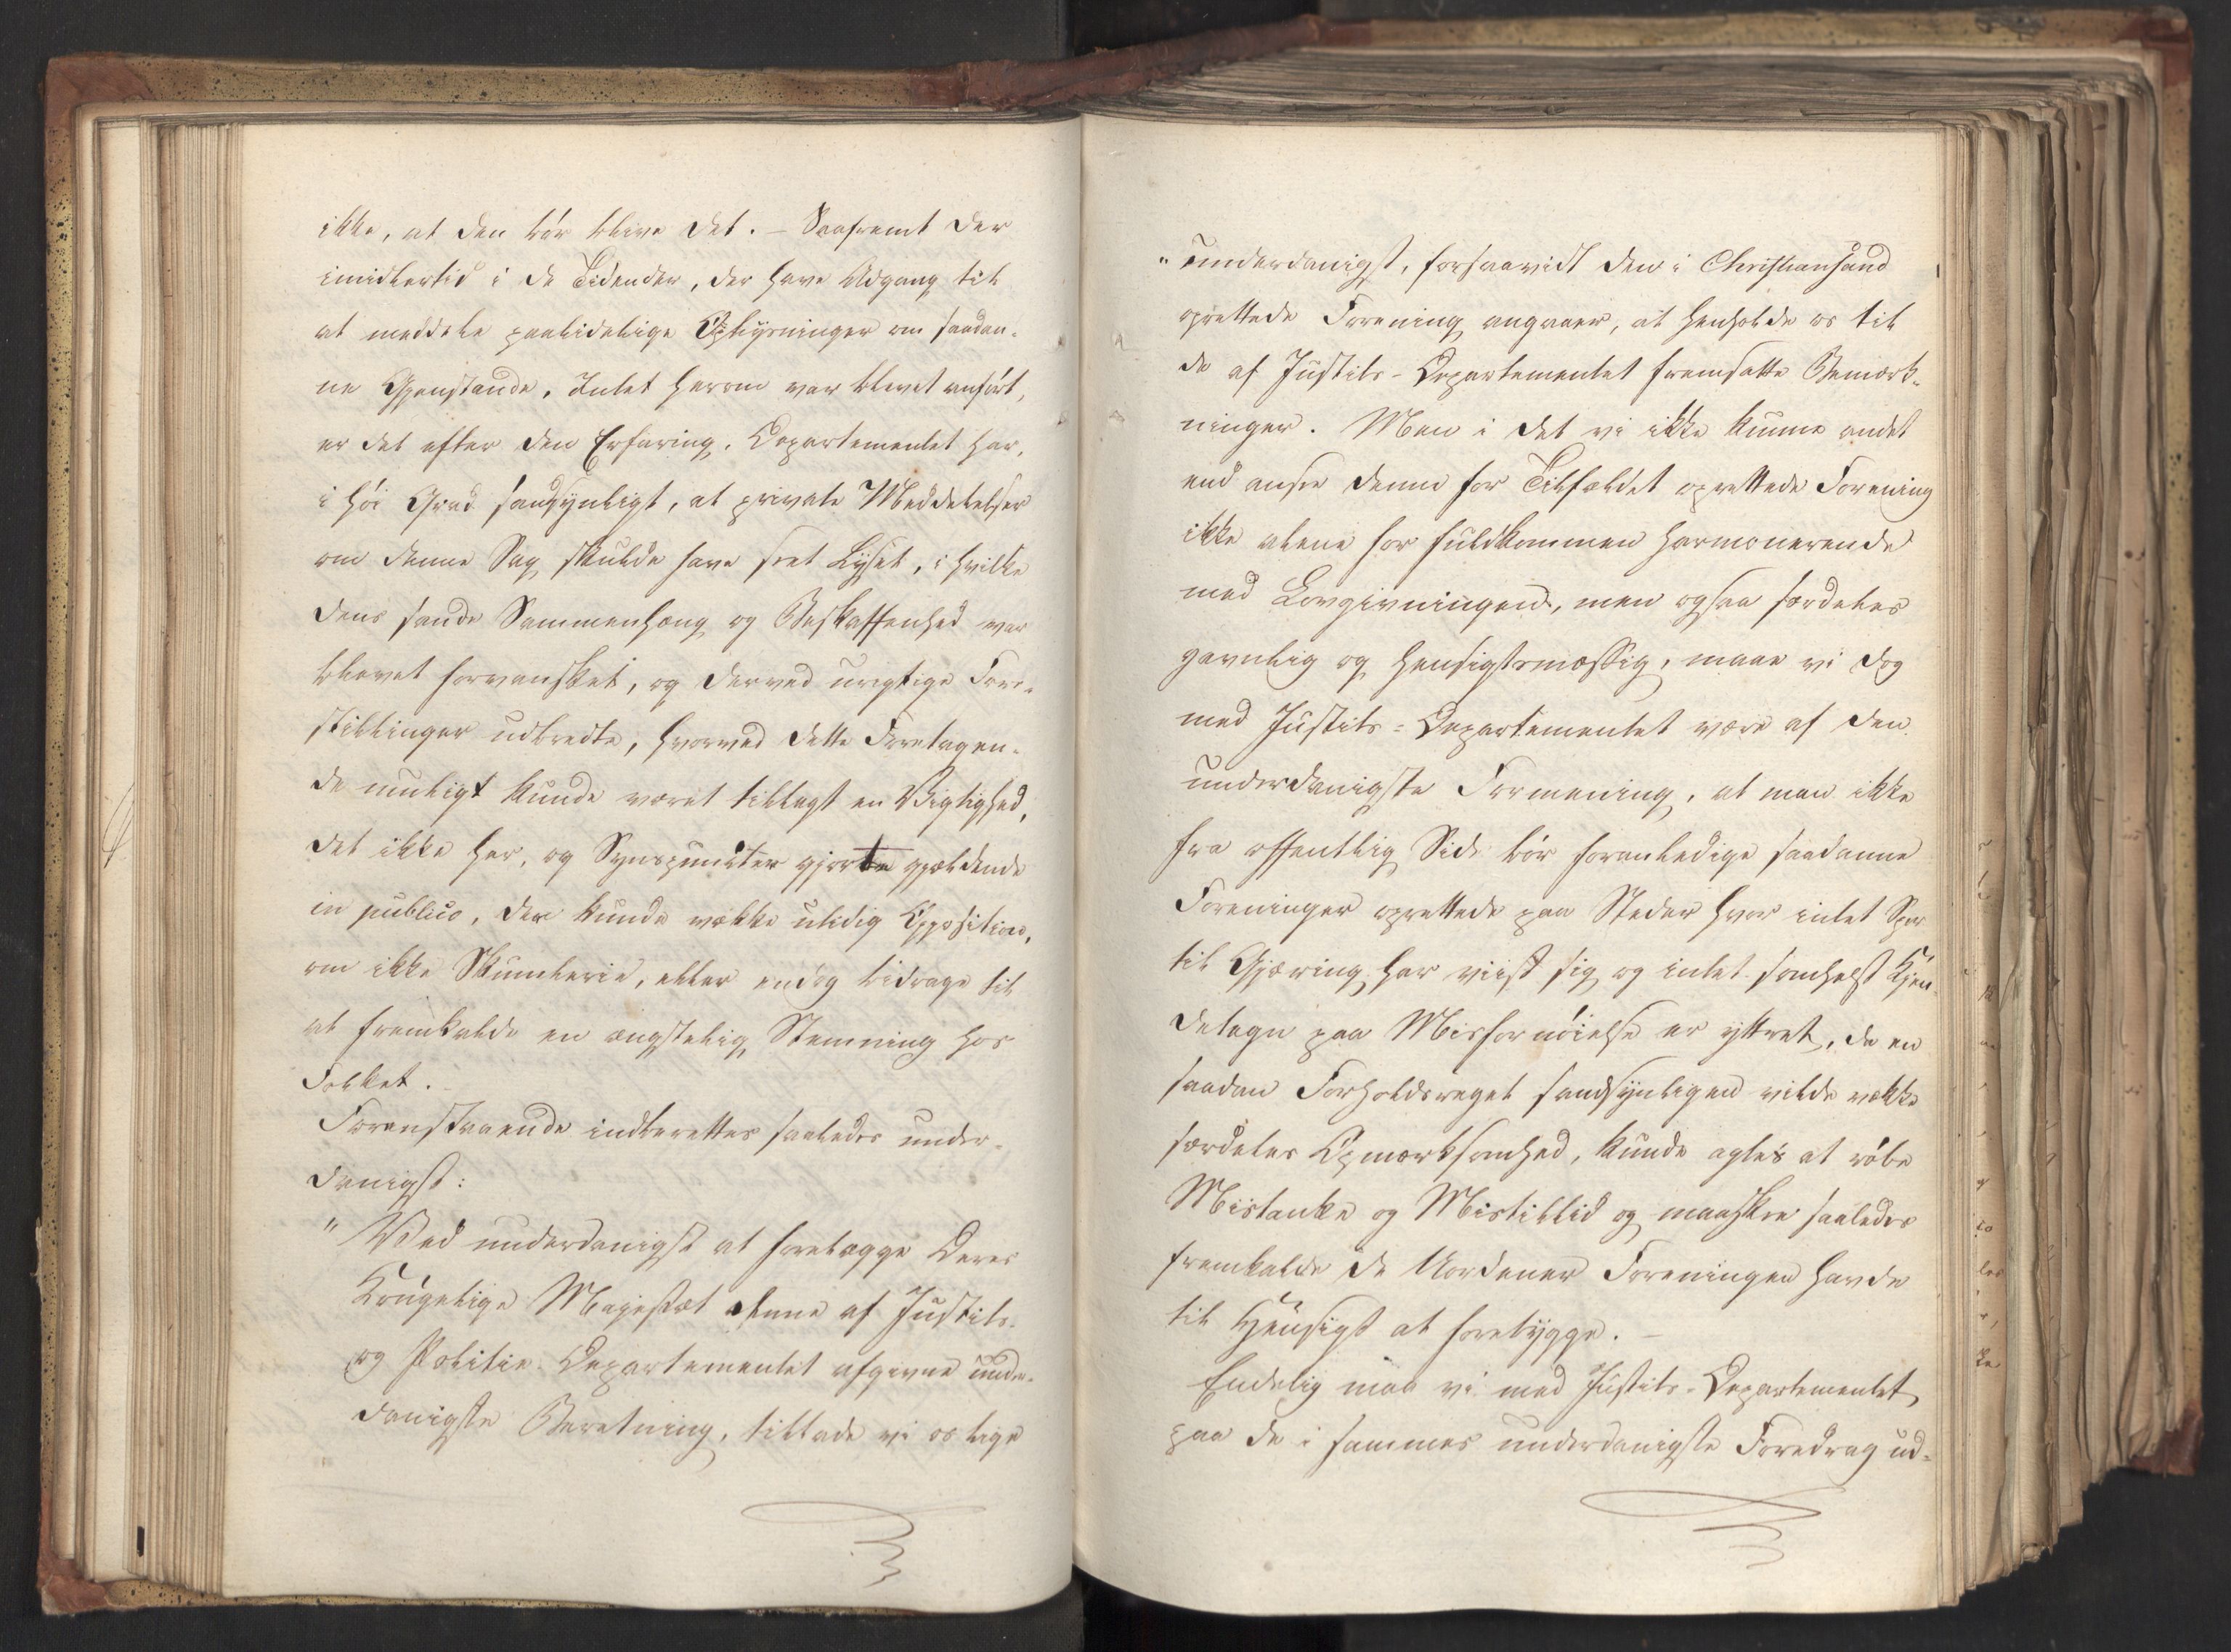 ikke, at den bør blive det. – Saafremt der
imidlertid i de Tidender, der have Adgang til
at meddele paalidelige Oplysninger om saadan-
ne Gjenstande, Intet herom var blevet anført,
er det efter den Erfaring, Departementet har,
i høi Grad sandsynligt, at private Meddelelser
om denne Sag skulde have seet Lyset, i hvilke
dens sande Sammenhæng og Beskaffenhed var
blevet forvansket, og derved urigtige Fore-
stillinger udbredte, hvorved dette Foretagen-
de muligt kunde været tillagt en Vigtighed,
det ikke har, og Synspunkter gjorte gjældende
in publico, der kunde vække utidig Opposition,
om ikke Skumlerie, eller endog bidrage til
at fremkalde en ængstelig Stemning hos
Folket. –
Foranstaaende indberettes saaledes under-
danigst:
" Ved underdanigst at forelægge Deres
Kongelige Majestæt denne af Justits-
og Politie-Departementet afgivne under-
danigste Beretning, tillade vi os lige
" underdanigst, forsaavidt den i Christiansand
oprettede Forening angaaer, at henholde os til
de af Justits-Departementet fremsatte Bemærk-
ninger. Men i det vi ikke kunne andet
end ansee denne for Tilfældet oprettede Forening
ikke alene for fuldkommen harmonerende
med Lovgivningen, men ogsaa særdeles
gavnlig og hensigtsmæssig, maae vi dog
med Justits-Departementet være af den
underdanigste Formening, at man ikke
fra offentlig Side bør foranledige saadanne
Foreninger oprettede paa Steder hvor intet Spor
til Gjæring har viist sig og intet somhelst Kjen-
detegn paa Misfornøielse er yttret, da en
saadan Forholdsregel sandsynligen vilde vække
særdeles Opmærksomhed, kunde agtes at røbe
Mistanke og Mistillid og maaskee saaledes
fremkalde de Uordener Foreningen havde
til Hensigt at forebygge. –
Endelig maa vi med Justits-Departementet,
paa de i sammes underdanigste Foredrag ud-